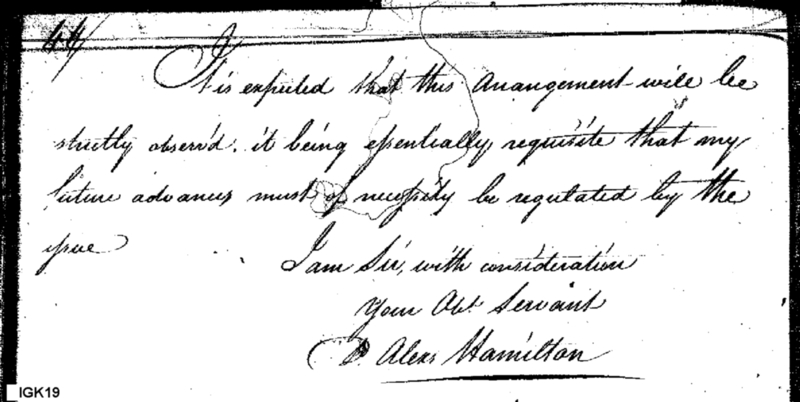 44/
It is expected that this Arrangement will be
strictly observ'd, it being essentially requisite that my
future advances must of necessity be regulated by the
issue
I am Sir, with consideration
Your Obt. Servant
Alexr Hamilton
IGK19